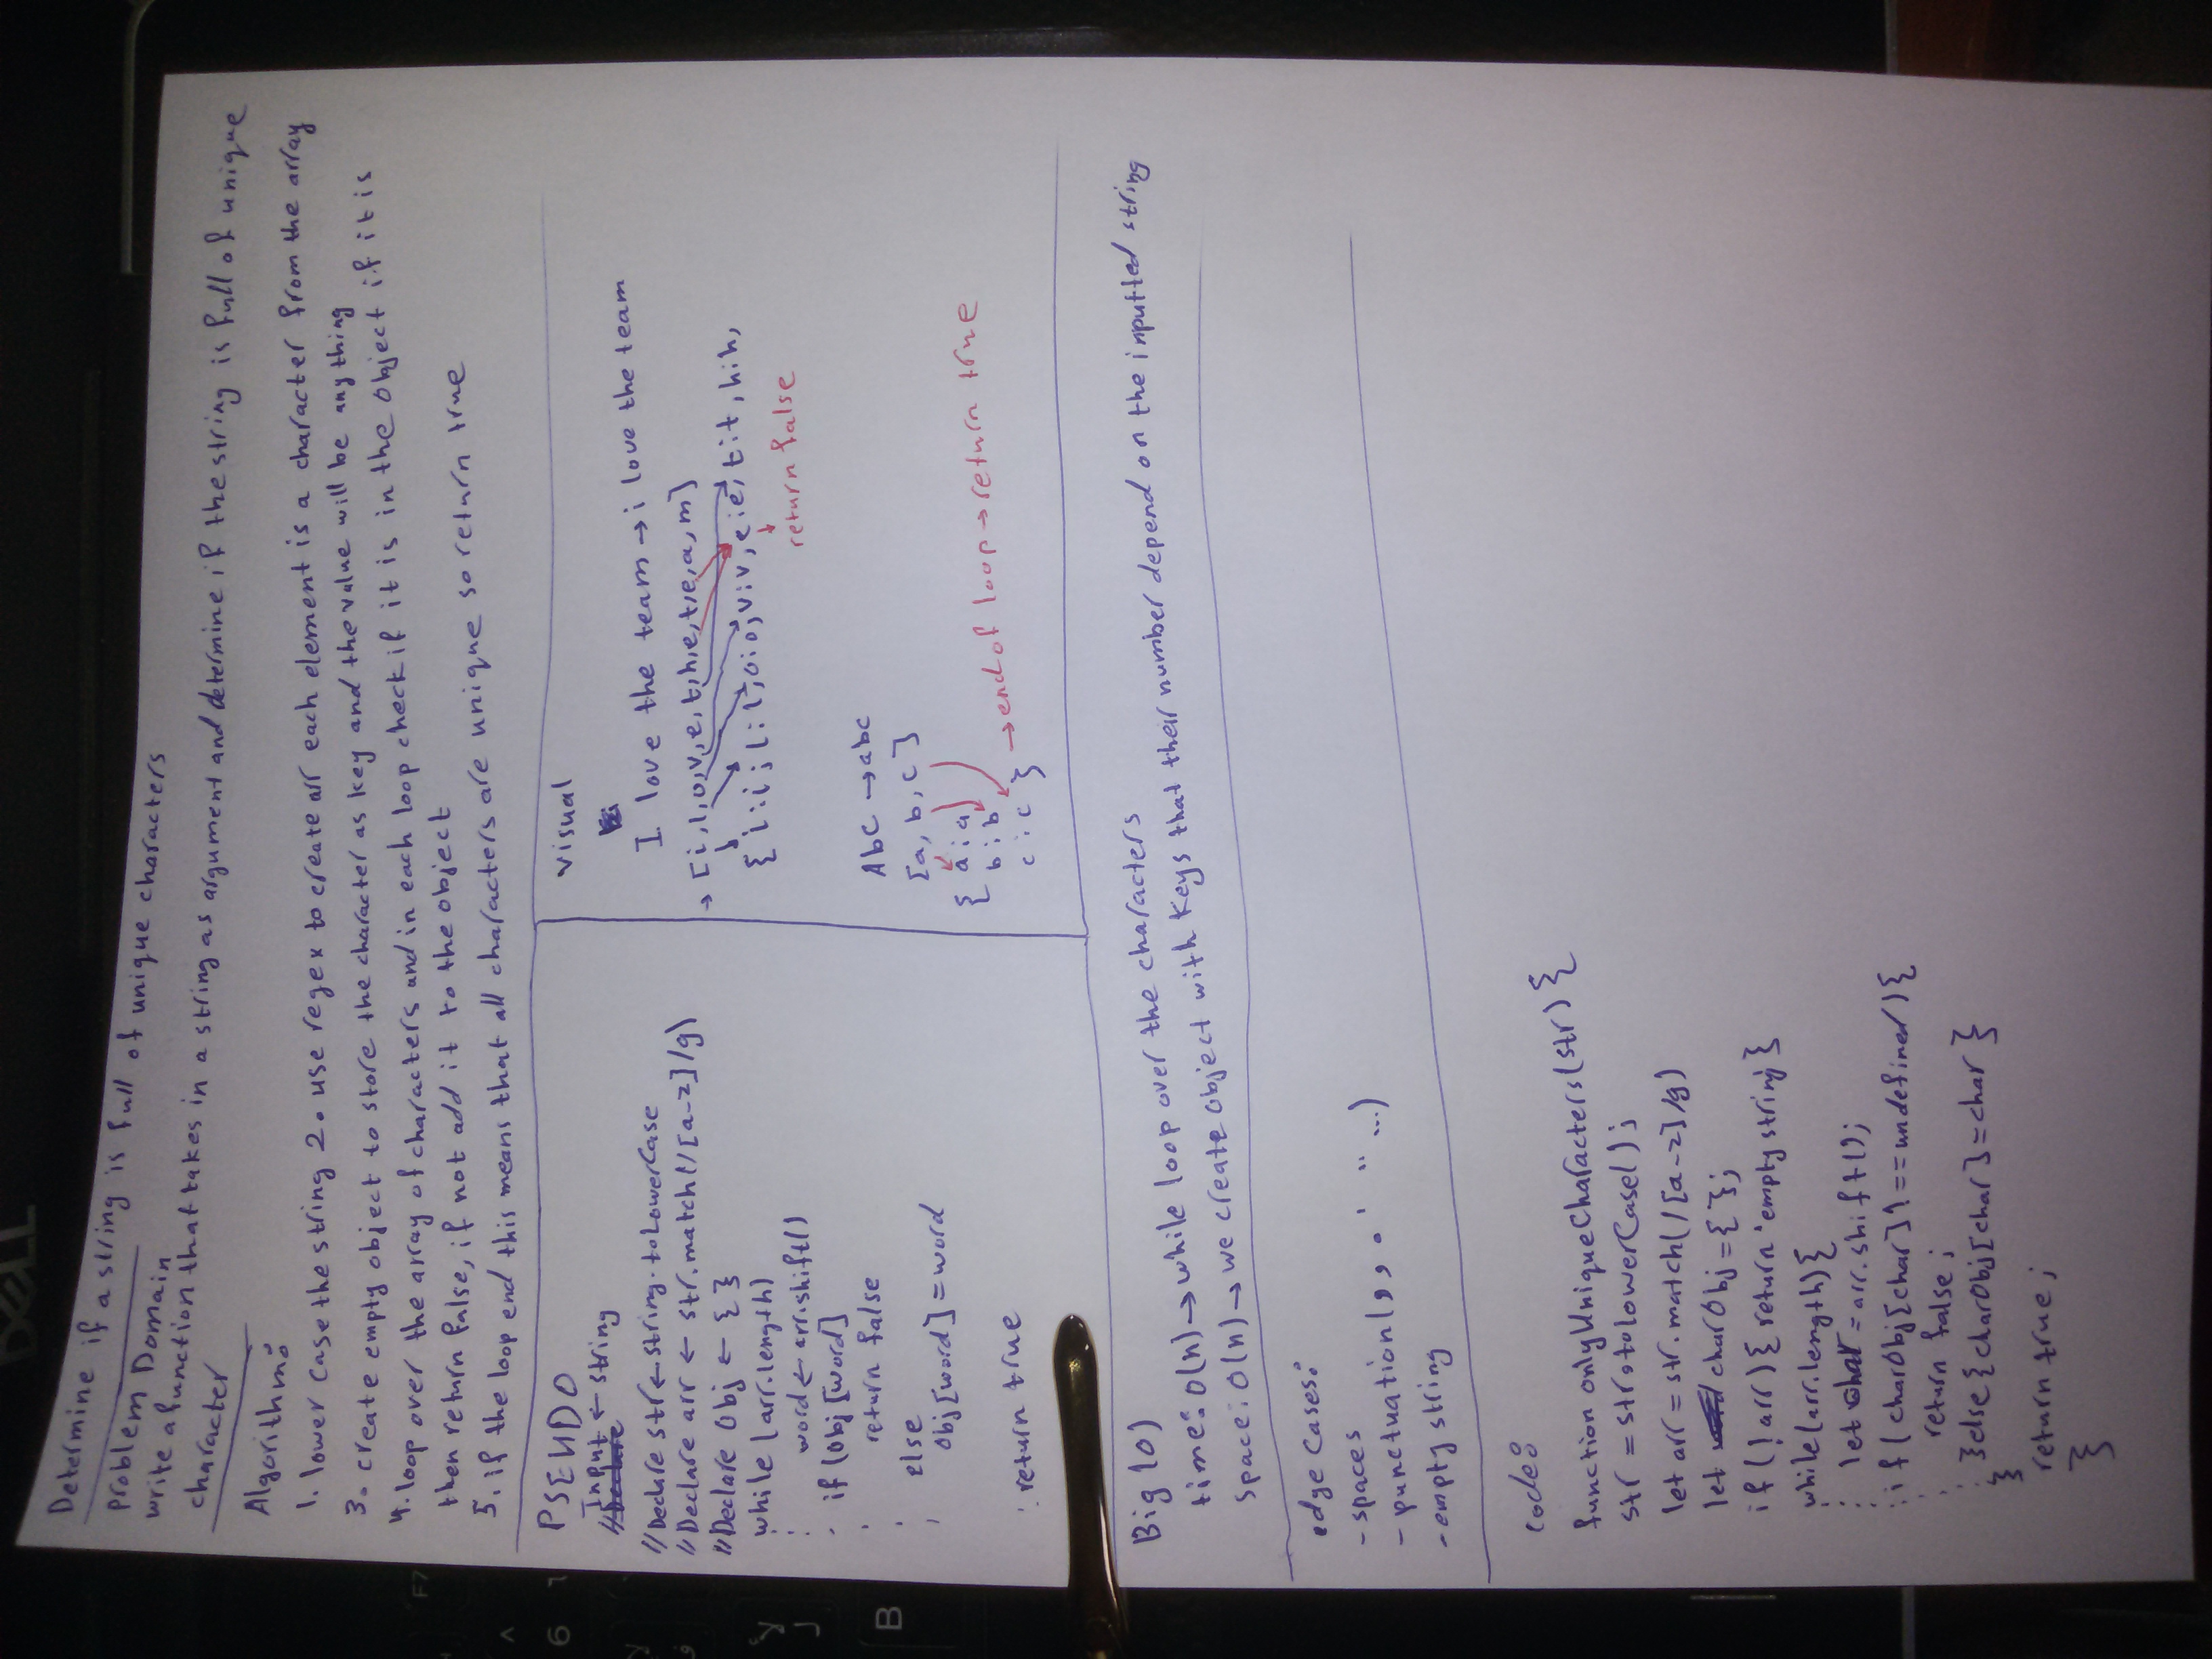 DELL
Determine if a string is full of unique characters
problem Domain
write a function that takes in a string as argument and determine if the string is full of unique
character
Algorithm:
1. lower case the string 2. use regex to create arr each element is a character from the array
3. create empty object to store the character as key and the value will be any thing
4. loop over the array of characters and in each loop check if it is in the object if it is
then return false, if not add it to the object
5. if the loop end this means that all characters are unique so return true
PSEUDO
Input ← string
//Declare str ← string.toLowerCase
//Declare arr ← str.match(/[a-z]/g)
//Declare Obj ← { }
while (arr.length)
word ← arr.shift()
if (Obj [word]
return false
else
Obj[word] = word
return true
visual
I love the team → i love the team
→ [i,l,o,v,e,t,h,e,t,e,a,m]
{ i:i, l:l, o:o, v:v, e:e, t:t, h:h,
return false
AbC → abc
[a, b, c ]
{ a:a
b:b
c:c } → end of loop → return true
Big (o)
time: O(n) → while loop over the characters
space: O(n) → we create object with keys that their number depend on the inputted string
edge cases:
- spaces
- punctuation(, , . ' " ...)
- empty string
code:
function onlyUniqueCharacters(str) {
str = str.toLowerCase();
let arr = str.match(/[a-z]/g)
let charObj = { };
if (! arr) { return 'empty string'}
while(arr.length){
let char = arr.shift();
if ( charObj[char] !== undefined ){
return false;
}else { charObj[char] = char }
}
return true;
}
F7
6
B